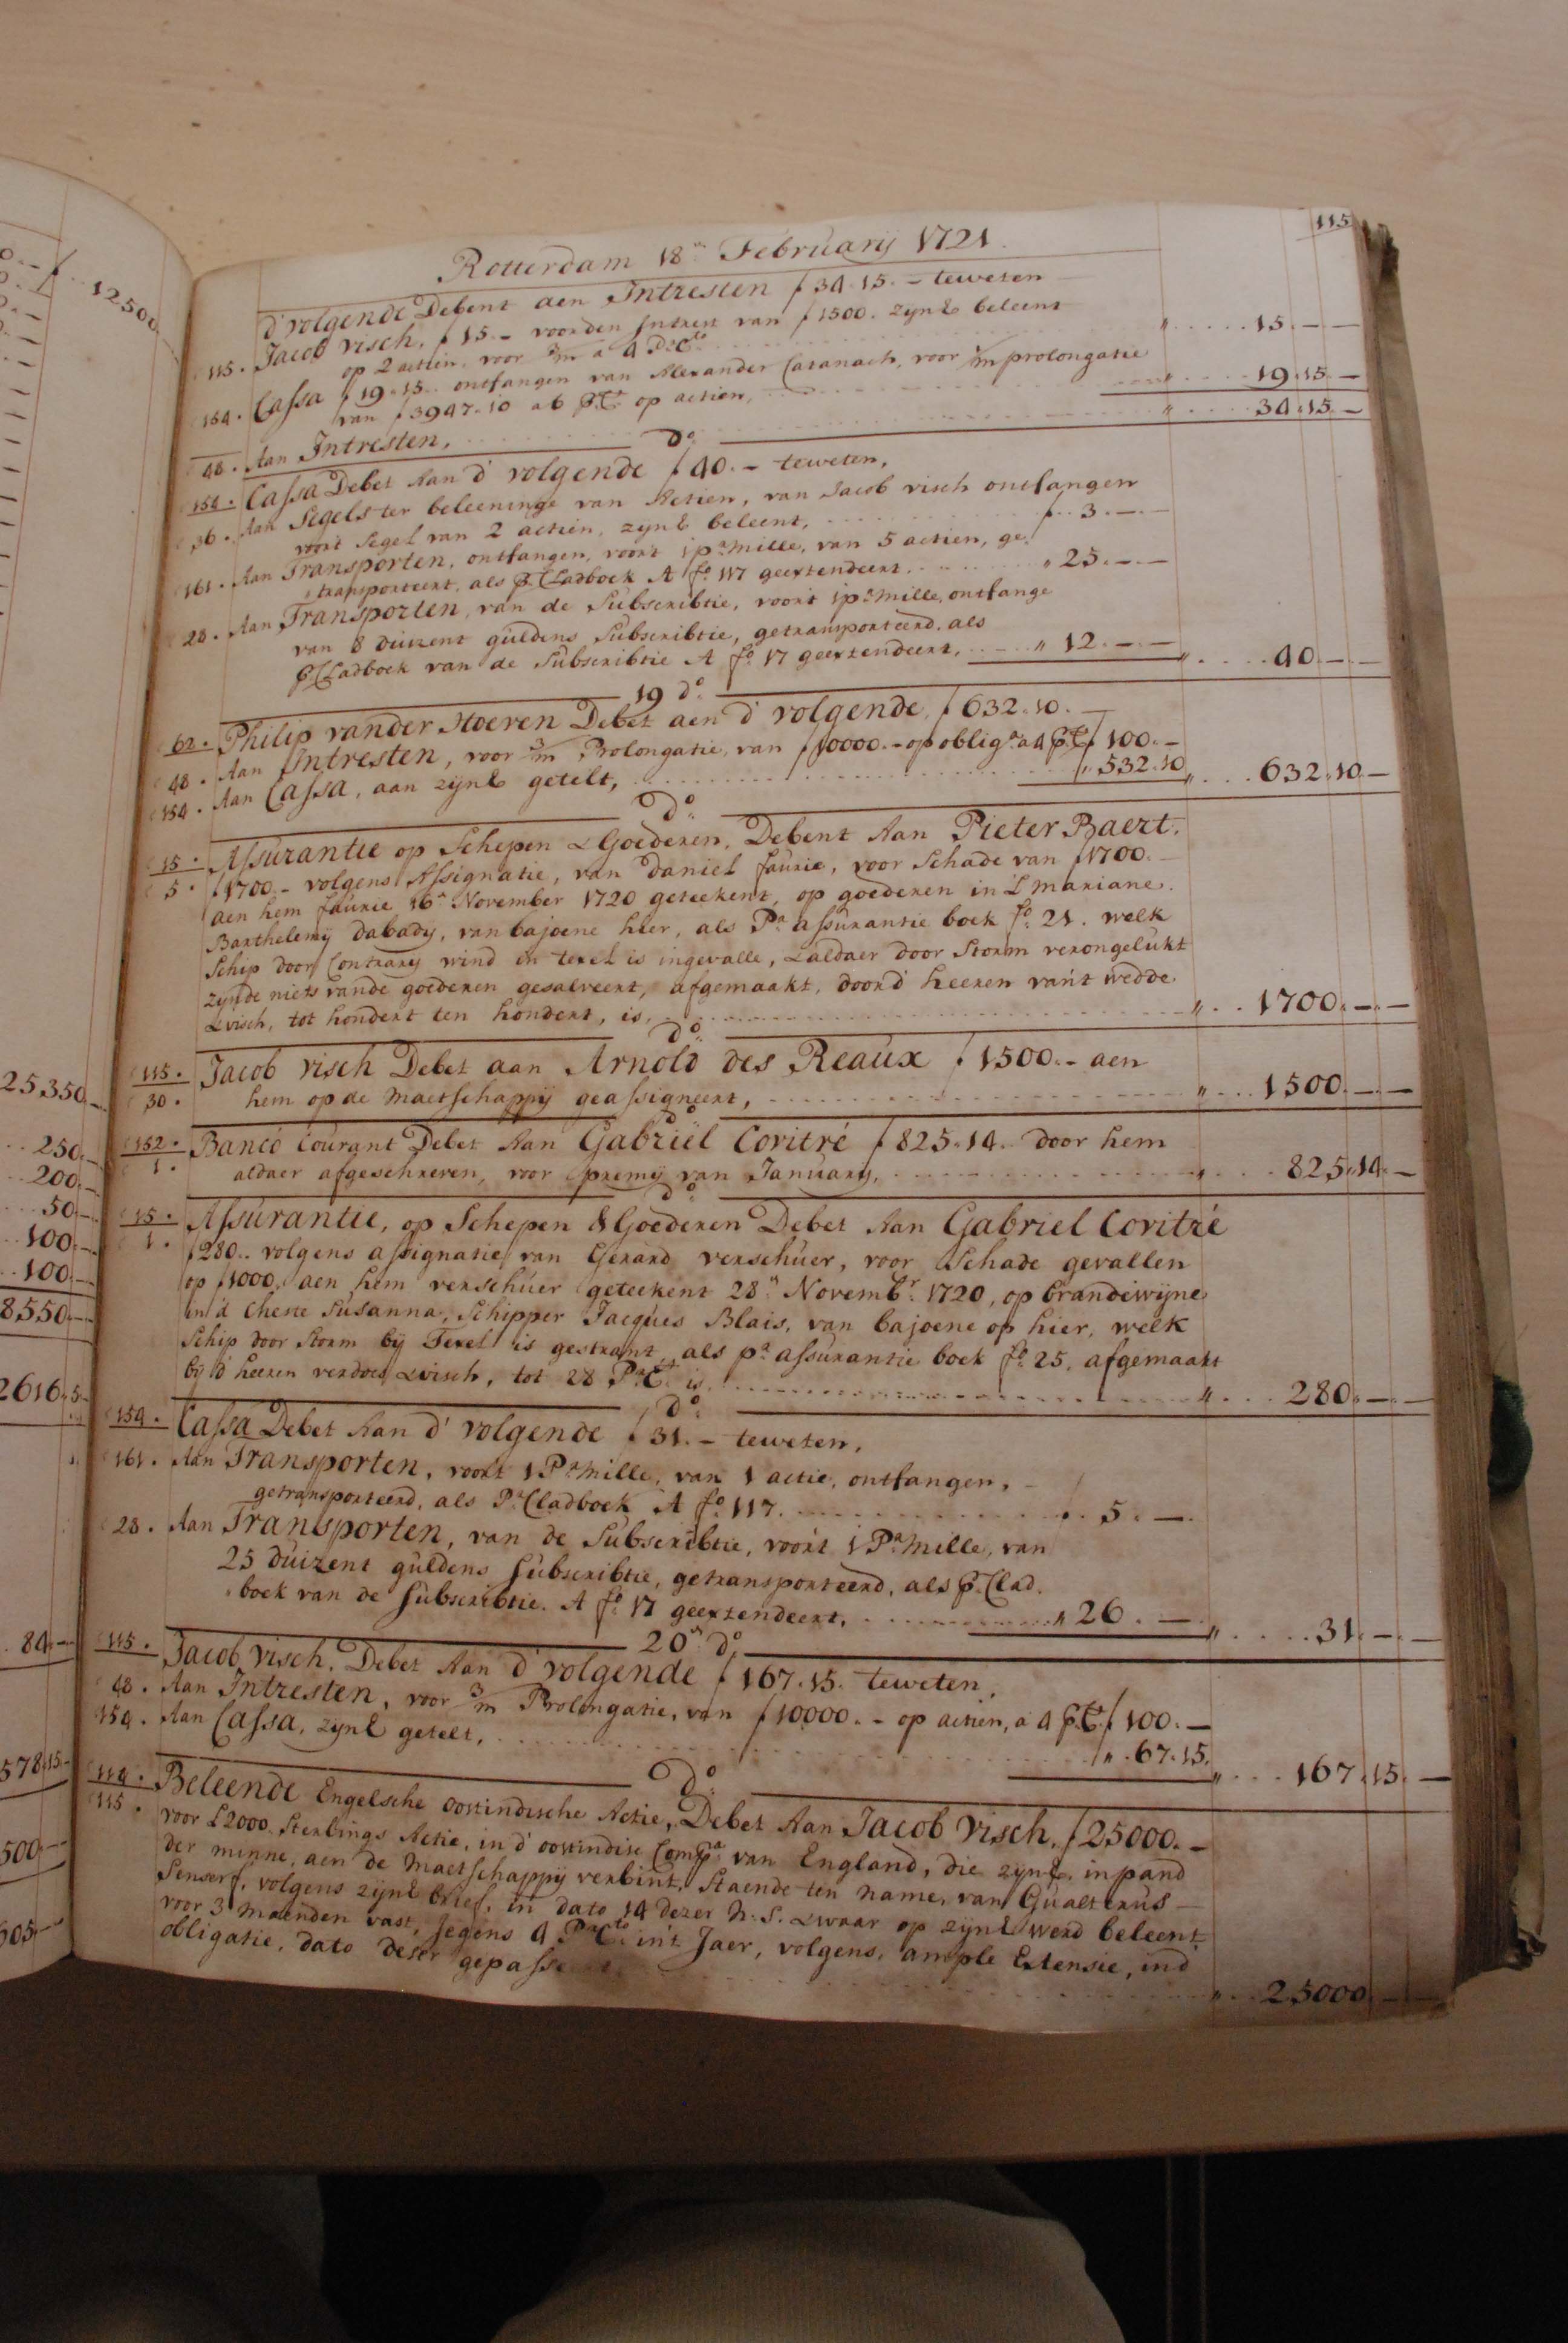 115
Rotterdam 18.n Februarij 1721.
d'volgende Debent aen Intresten ƒ 34.15.- teweten
115. Jacob Visch, ƒ 15.- voor den Intrest van ƒ 1500. zijnE beleent
op 2 actien, voor 3/m a 4 PrCto " 15.—
154. Cassa ƒ 19.15.. ontfangen van Alexander Caranach, voor /m prolongatie
van ƒ 3947.10 a 6 PrCto op actien, " 19.15.—
48. Aan Intresten, " 34.15.—
Do
154. Cassa Debet Aan d'volgende ƒ 40.- teweten,
36. Aan Segels ter beleeninge van Actien, van Jacob Visch ontfangen
voort Segel van 2 actien, zijnE beleent, ƒ 3.—
161. Aan Transporten, ontfangen, voort 1 pr Mille, van 5 actien, ge-
transporteert, als Pr Cladboek A fo 117 geextendeert. " 25.—
28. Aan Transporten, van de Subscribtie, voort 1 pr Mille, ontfange
van 8 duizent guldens Subscribtie, getransporteerd, als
Pr Cladboek van de Subscribtie A fo 17 geextendeert, " 12.— " 40.—
19 Do
62. Philip vander Hoeven Debet aen d'volgende, ƒ 632.10.—
48. Aan Intresten, voor 3/m Prolongatie, van ƒ 10000.- op oblign a 4 PrCto ƒ 100.-
154. Aan Cassa, aan zijnE getelt, " 532.10 " 632.10—
Do
15. Assurantie op Schepen & Goederen, Debent Aan Pieter Baert.
5. ƒ 1700.- volgens Assignatie, van Daniel faurie, voor Schade van ƒ 1700.-
aen hem faurie 16n November 1720 geteekent, op goederen in L'mariane.
Barthelemij Dabady, van bajoene hier, als Pr assurantie boek fo 21. welk
Schip door Contrarij wind in texel is ingevalle, & aldaer door Storm verongelukt
zijnde niets vande goederen gesalveert, afgemaakt, door d'heeren van't wedde
& visch, tot hondert ten hondert, is, " 1700.—
Do
115. Jacob Visch Debet aan Arnold des Reaux ƒ 1500.- aen
30. hem op de Maetschappij geassigneert, " 1500.—
Do
152. Banco Courant Debet Aan Gabriël Coritré ƒ 825.14.. door hem
1. aldaer afgeschreven, voor premij van January, " 825.14.—
Do
15. Assurantie, op Schepen & Goederen Debet Aan Gabriel Coritré
1. ƒ 280.. volgens assignatie van Gerard verschuer, voor Schade gevallen
op ƒ 1000, aen hem verschuer geteekent 28n Novembr 1720, op brandewijne
in d' Chere Susanna, Schipper Jacques Blais, van bajoene op hier, welk
Schip door Storm bij Texel is gestrant, als pr assurantie boek fo 25, afgemaakt
bij d'heeren verdoes & visch, tot 28 PrCt is, " 280.—
Do
154. Cassa Debet Aan d'volgende ƒ 31.- teweten,
161. Aan Transporten, voort 1 Pr Mille, van 1 actie, ontfangen,
getransporteerd, als Pr Cladboek A fo 117. ƒ 5.—
28. Aan Transporten, van de Subscribtie, voort 1 Pr Mille, van
25 duizent guldens Subscribtie, getransporteerd, als Pr Clad-
boek van de Subscribtie. A fo 17 geextendeert, " 26.— " 31.—
20n Do
115. Jacob Visch, Debet Aan d'volgende ƒ 167.15. teweten,
48. Aan Intresten, voor 3/m Prolongatie, van ƒ 10000.- op actien, a 4 PrCto ƒ 100.—
154. Aan Cassa, zijnE getelt, " 67.15. " 167.15.—
Do
114. Beleende Engelsche oostindische Actie, Debet Aan Jacob Visch, ƒ 25000.-
115. voor £ 2000 Sterlings Actie, in d'oostindise Compa van England, die zijnE, in pand
der minne, aen de Maetschappij verbint, Staende ten name, van Gualterus
Senserf, volgens zijnE brief, in dato 14 dezer N.S. & waar op zijnE werd beleent
voor 3 Maenden vast, Jegens 4 PrCto in't Jaer, volgens, ample Extensie, in d'
obligatie, dato deser gepasse " 25000.—
12500
25350
250
200
50
100
100
8550
2616.5
84
578.15
500